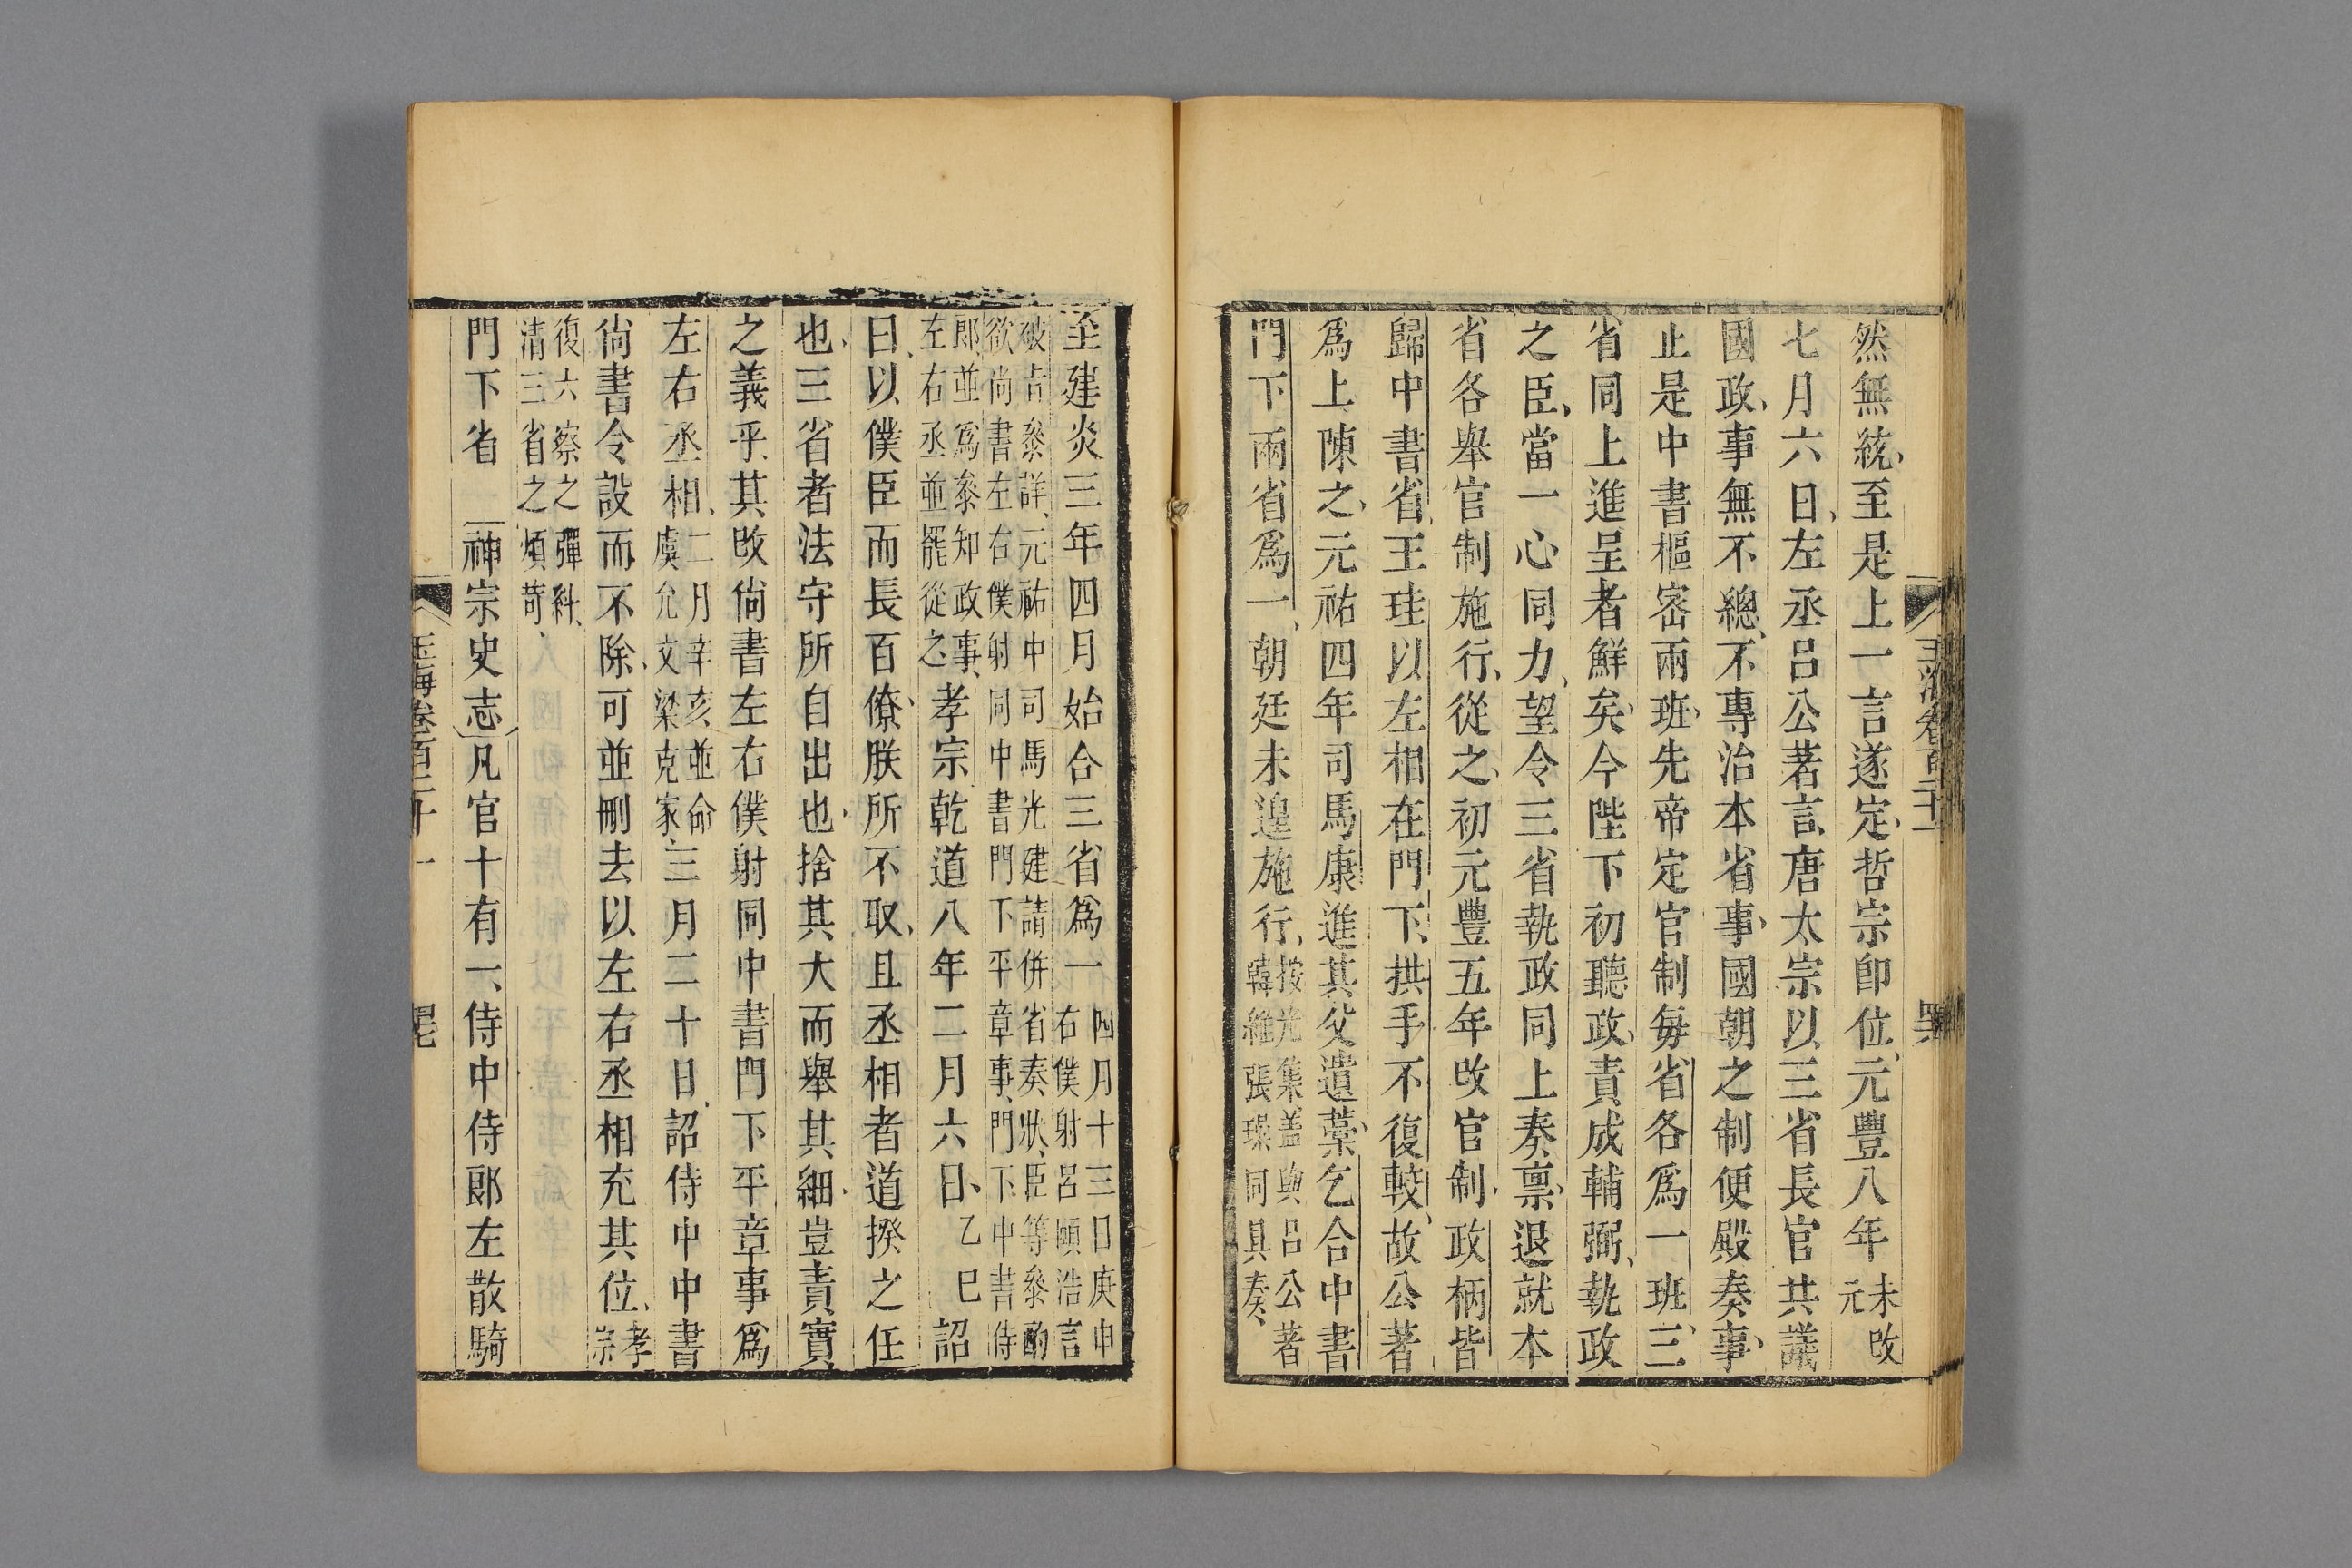 然無統至是上一言遂定哲宗卽位元豐八年未改元
七月六日左丞呂公著言唐太宗以三省長官共議
國政事無不總不專治本省事國朝之制便殿奏事
止是中書樞密兩班先帝定官制每省各爲一班三
省同上進呈者鮮矣今陛下初聽政責成輔弼執政
之臣當一心同力望令三省執政同上奏禀退就本
省各舉官制施行從之初元豐五年改官制政柄皆
歸中書省王珪以左相在門下拱手不復較故公著
爲上陳之元祐四年司馬康進其父遺藁乞合中書
門下兩省爲一朝廷未遑施行按光集蓋與呂公著韓維張璪同具奏
至建炎三年四月始合三省爲一四月十三日庚申右僕射呂頤浩言
破㫖叅詳元祐中司馬光建請併省奏狀臣等叅酌欲尙書左右僕射同中書門下平章事門下中書侍
郞並爲叅知政事左右丞並罷從之孝宗乾道八年二月六日乙巳詔
曰以僕臣而長百僚朕所不取且丞相者道揆之任
也三省者法守所自出也捨其大而舉其細豈責實
之義乎其改尙書左右僕射同中書門下平章事爲
左右丞相二月辛亥並命虞允文梁克家三月二十日詔侍中中書
尙書令設而不除可並刪去以左右丞相充其位孝宗
復六察之彈糾清三省之煩苛
門下省 神宗史志凡官十有一侍中侍郞左散騎
玉海卷百二十一